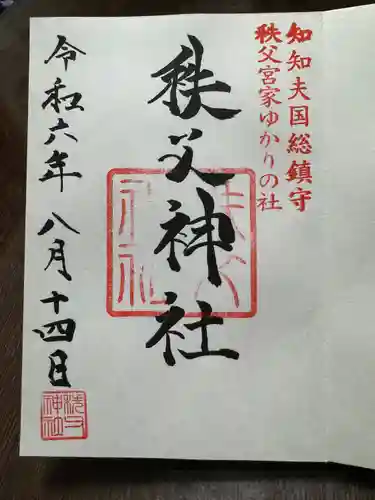 知知夫国総鎮守
秩父宮家ゆかりの社
秩父神社
令和六年八月十四日
秩父神社